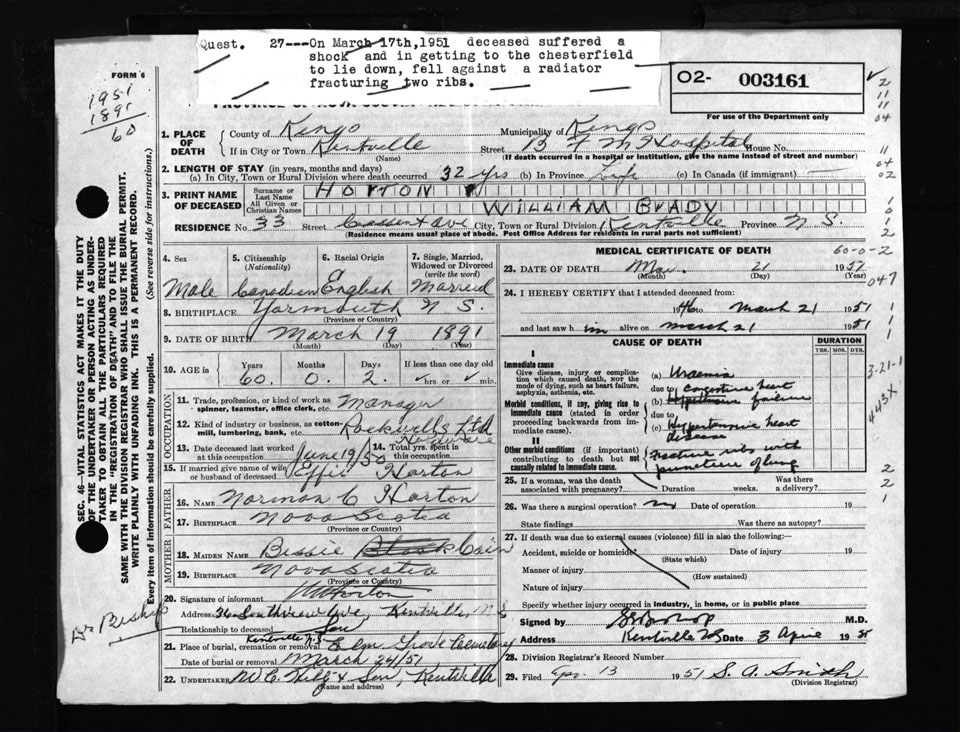 Quest. 27---On March 17th,1951 deceased suffered a
shock and in getting to the chesterfield
to lie down, fell against a radiator
fracturing two ribs.
O2- 003161
For use of the Department only
FORM 6
1951
1891
60
SEC. 46 VITAL STATISTICS ACT MAKES IT THE DUTY
OF THE UNDERTAKER OR PERSON ACTING AS UNDER-
TAKER TO OBTAIN ALL THE PARTICULARS REQUIRED
IN THE "REGISTRATION OF DEATH" AND TO FILE THE
SAME WITH THE DIVISION REGISTRAR WHO SHALL ISSUE THE BURIAL PERMIT.
WRITE PLAINLY WITH UNFADING INK. THIS IS A PERMANENT RECORD.
Every item of information should be carefully supplied. (See reverse side for instructions.)
1. PLACE OF DEATH
County of Kings Municipality of Kings
If in City or Town Kentville Street B F M Hospital House No.
(Name) (If death occurred in a hospital or institution, give the name instead of street and number)
2. LENGTH OF STAY (in years, months and days)
(a) In City, Town or Rural Division where death occurred 32 yrs (b) In Province Life (c) In Canada (if immigrant) —
3. PRINT NAME OF DECEASED
Surname or Last Name HORTON
All Given or Christian Names WILLIAM BRADY
RESIDENCE No. 33 Street Ave City, Town or Rural Division Kentville Province N.S.
(Residence means usual place of abode. Post Office Address for residents in rural parts not sufficient)
4. Sex Male
5. Citizenship (Nationality) Canadian
6. Racial Origin English
7. Single, Married, Widowed or Divorced (write the word) Married
8. BIRTHPLACE Yarmouth N.S.
(Province or Country)
9. DATE OF BIRTH March 19 1891
(Month) (Day) (Year)
10. AGE in Years 60 Months 0 Days 2 If less than one day old hrs or min.
OCCUPATION
11. Trade, profession, or kind of work as spinner, teamster, office clerk, etc. Manager
12. Kind of industry or business, as cotton-mill, lumbering, bank, etc. Rockwells Ltd Hardware
13. Date deceased last worked at this occupation June 1950
14. Total yrs. spent in this occupation
15. If married give name of wife or husband of deceased Effie Horton
FATHER
16. NAME Norman C Horton
17. BIRTHPLACE Nova Scotia
(Province or Country)
MOTHER
18. MAIDEN NAME Bessie Cain
19. BIRTHPLACE Nova Scotia
(Province or Country)
20. Signature of informant Horton
Address 36 Southview Ave, Kentville, N.S
Relationship to deceased Son
Kentville N.S.
21. Place of burial, cremation or removal Elm Grove Cemetery
Date of burial or removal March 24/51
22. UNDERTAKER & Son, Kentville
(Name and address)
Dr Bishop
MEDICAL CERTIFICATE OF DEATH 60-0-2
23. DATE OF DEATH Mar. 21 19
(Month) (Day) (Year)
047
24. I HEREBY CERTIFY that I attended deceased from:
1946 to March 21 1951
and last saw him alive on March 21 1951
CAUSE OF DEATH
DURATION
YRS. MOS. DYS.
I
Immediate cause
Give disease, injury or complication which caused death, NOT the mode of dying, such as heart failure, asphyxia, asthenia, etc.
(a) Uraemia
due to Congestive heart
Morbid conditions, if any, giving rise to immediate cause (stated in order proceeding backwards from immediate cause).
(b) failure
due to
(c) Hypertensive heart disease
II
Other morbid conditions (if important) contributing to death but not causally related to immediate cause.
Fracture ribs with puncture of lung
3-21-1
443X
25. If a woman, was the death associated with pregnancy? Duration weeks. Was there a delivery?
26. Was there a surgical operation? no Date of operation 19
State findings Was there an autopsy?
27. If death was due to external causes (violence) fill in also the following:—
Accident, suicide or homicide? Date of injury 19
(State which)
Manner of injury
(How sustained)
Nature of injury
Specify whether injury occurred in industry, in home, or in public place
Signed by M.D.
Address Kentville NS Date 3 April 19
28. Division Registrar's Record Number
29. Filed apr. 13 1951 S. A. Smith
(Division Registrar)